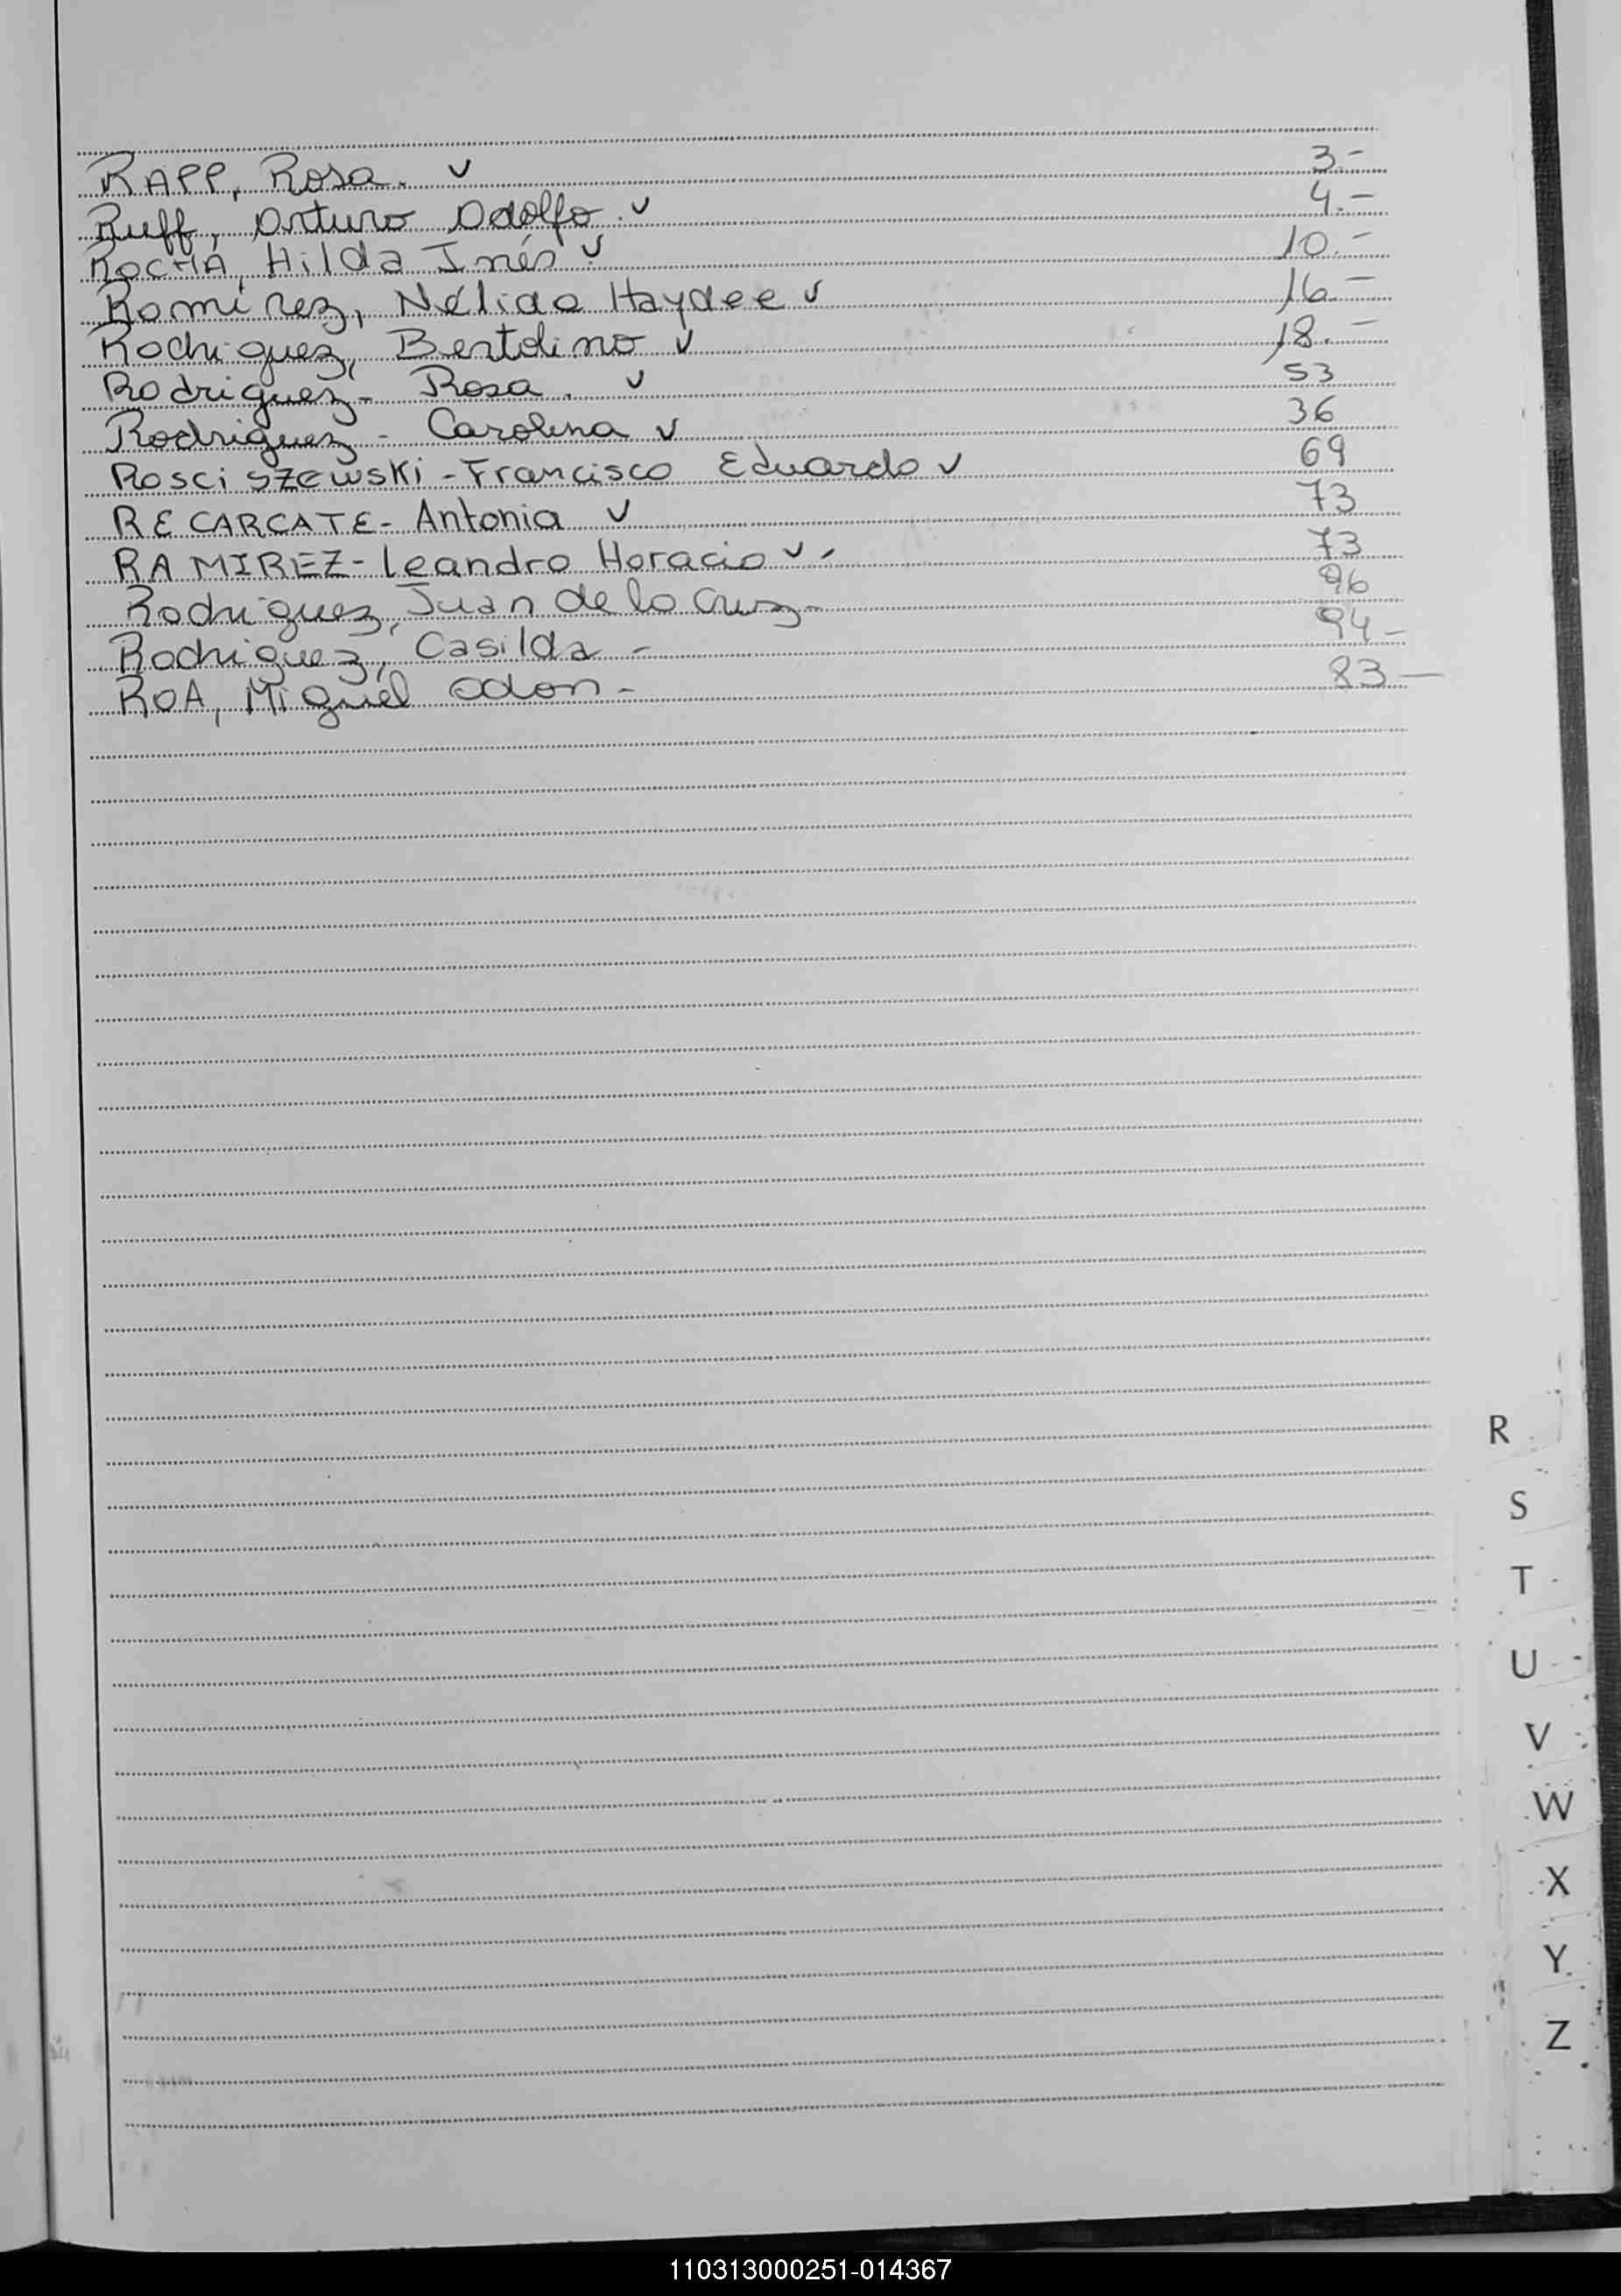 RAPP, Rosa. ✓ 3.-
Ruff, Arturo Adolfo. ✓ 4.-
ROCHA, Hilda Inés ✓ 10.-
Ramirez, Nélida Haydee ✓ 16.-
Rodriguez, Bertolino ✓ 18.-
Rodriguez - Rosa. ✓ 53
Rodriguez - Carolina ✓ 36
Rosciszewski - Francisco Eduardo ✓ 69
RECARCATE - Antonia ✓ 73
RAMIREZ - Leandro Horacio ✓ - 73
Rodriguez, Juan de la Cruz - 96
Rodriguez, Casilda - 94 -
ROA, Miguel Odon - 83 -
R
S
T
U
V
W
X
Y
Z
110313000251-014367